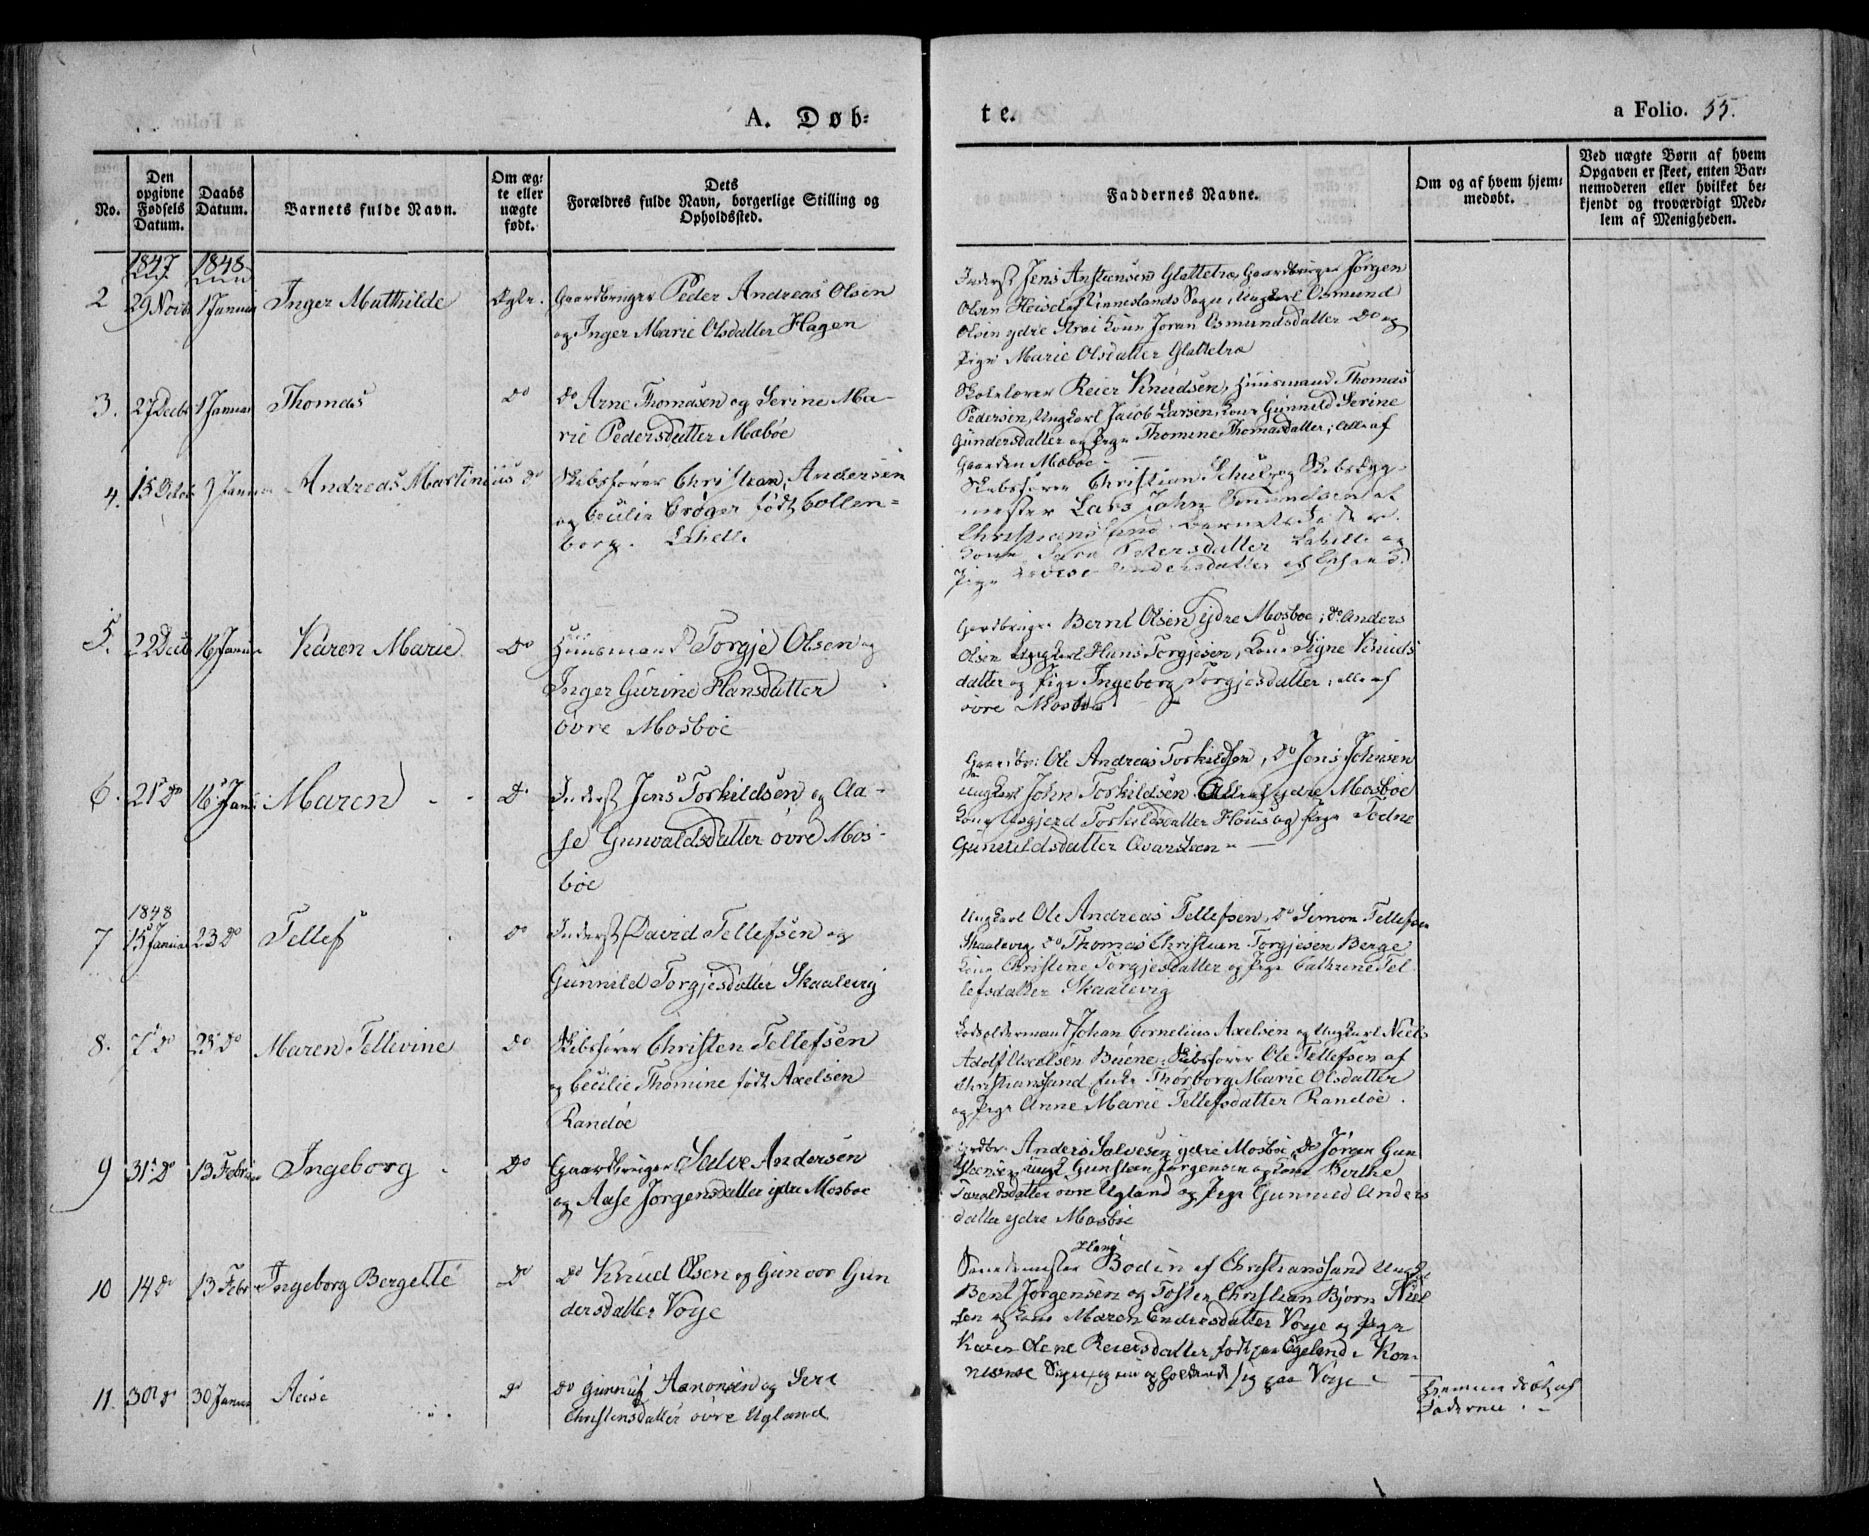 A. Døb-
te.
a Folio. 55.
No.
Den opgivne Fødsels Datum.
Daabs Datum.
Barnets fulde Navn.
Om ægte eller uægte født.
Dets
Forældres fulde Navn, borgerlige Stilling og
Opholdssted.
Faddernes Navne.
Om og af hvem hjem-
medøbt.
Ved uægte Børn af hvem
Opgaven er skeet, enten Bar-
nemoderen eller hvilket be-
kjendt og troværdigt Med-
lem af Menigheden.
1847 1848
2 29 Novb 1 Januar Inger Mathilde Ægte. Gaardbruger Peder Andreas Olsen
og Inger Marie Olsdatter Hagen
Inderst Jens Anstensen Glattetræ, Gaardbruger Jørgen
Olsen Heisel af Sogn, Ungkarl Osmund
Olsen ydre Kone Joran Osmundsdatter Do og
Pige Marie Olsdatter Glattetræ
3. 27 Decbr 1 Januar Thomas Do Do Arne Thomasen og Serine Ma-
rie Pedersdatter Mæbøe
Skolelærer Reier Knudsen, Huusmand Thomas
Pedersen, Ungkarl Jacob Larsen, Kone Gunnild Serine
Gundersdatter og Pige Thomine Thomasdatter; Alle af
Gaarden Mæbøe
4. 15 Octob 9 Januar Andreas Martinius Do Skibsfører Christian Andersen
og Cecilie Crøger født Collen-
borg. Labell.
Skibsfører Christian Schulz og Skibsbygg-
mester Lars John af
Christianssand. Barnets Fader
Kone Pedersdatter Labelle og
Pige datter af
5. 22 Decb 16 Januar Karen Marie Do Huusmand Torgje Olsen og
Inger Gurine Hansdatter
øvre Mosbøe
Gardbruger Bernt Olsen ydre Mosbøe, Do Anders
Olsen Ungkarl Hans Torgjesen, Kone Signe Knuds
datter og Pige Ingeborg Torgjesdatter, alle af
øvre Mosbøe
6. 21 Do 16 Janu Maren Do Inderst Jens Torkildsen og Aa-
se Gunvaldsdatter øvre Mos-
bøe
Gaardbr: Ole Andreas Torkildsen, Do Jens Johnsen
Ungkarl John Torkildsen Alle af ydre Mosbøe
Kone Asgjerd Torkildsdatter og Pige Todne
Gunvildsdatter
1848
7 15 Januar 23 Do Tellef Do Inderst David Tellefsen og
Gunnild Torgjesdatter Skaalevig
Ungkarl Ole Andreas Tellefsen, Do Simon Tellefsen
Skaalevig, Do Thomas Christian Torgjesen Berge
Kone Christine Torgjesdatter og Pige Cathrine Tel
lefsdatter Skaalevig
8. 7 Do 25 Do Maren Tellevine Do Skibsfører Christen Tellefsen
og Cecilie Thomine født Axelsen
Randøe
Lodsoldermand Johan Cornelius Axelsen og Ungkarl Niels
Adolf Axelsen Buene, Skibsfører Ole Tellefsen af
Christianssand, Enke Thorborg Marie Olsdatter
og Pige Anne Marie Tellefsdatter Randøe.
9 31 Do 13 Febru Ingeborg Do Gaardbruger Salve Andersen
og Aase Jørgensdatter ydre Mosbøe
Gardbr. Anders Salvesen ydre Mosbøe, Do Jørgen Gun
steensen, Ungk. Gunsteen Jørgensen og Kone Berthe
Taraldsdatter øvre Ugland og Pige Gunnild Anders
datter ydre Mosbøe
10 14 Do 13 Febr Ingeborg Bergette Do Do Knud Olsen og Gunvor Gun
dersdatter Voje
Hans
Bodin af Christianssand Ungk
Bent Jørgensen og Tosten Christian Bjørn Niel
sen og Kone Maren Endresdatter Voje og Pige
Karen Lene Reiersdatter født paa Egeland i
Sogn, og sig paa Voje
11. 30 Do 30 Januar Aase Do Do Gunnuf Aanonsen og Seri
Christensdatter øvre Ugland
Hjemmedøbt af
Faderen.